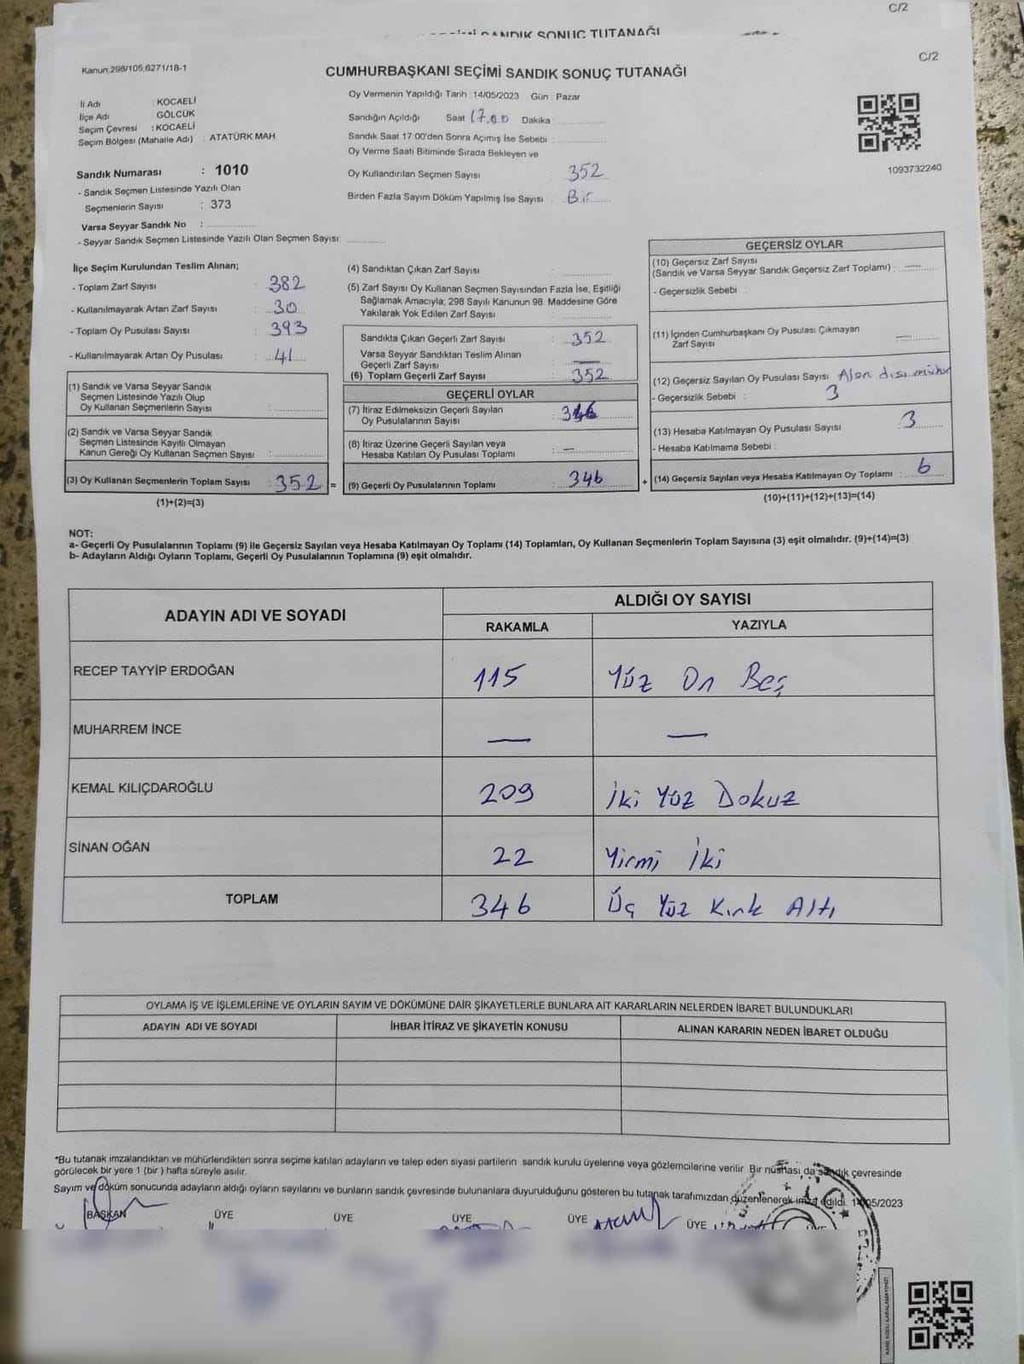 C/2
SANDIK SONUÇ TUTANAĞI
C/2
Kanun:298/105,6271/18-1
CUMHURBAŞKANI SEÇİMİ SANDIK SONUÇ TUTANAĞI
İl Adı : KOCAELİ
İlçe Adı : GÖLCÜK
Seçim Çevresi : KOCAELİ
Seçim Bölgesi (Mahalle Adı) : ATATÜRK MAH
Sandık Numarası : 1010
- Sandık Seçmen Listesinde Yazılı Olan
Seçmenlerin Sayısı : 373
Varsa Seyyar Sandık No :
- Seyyar Sandık Seçmen Listesinde Yazılı Olan Seçmen Sayısı:
Oy Vermenin Yapıldığı Tarih :14/05/2023 Gün : Pazar
Sandığın Açıldığı Saat 17.00 Dakika
Sandık Saat 17:00'den Sonra Açımış İse Sebebi :
Oy Verme Saati Bitiminde Sırada Bekleyen ve
Oy Kullandırılan Seçmen Sayısı : 352
Birden Fazla Sayım Döküm Yapılmış İse Sayısı : Bir
1093732240
İlçe Seçim Kurulundan Teslim Alınan;
- Toplam Zarf Sayısı : 382
- Kullanılmayarak Artan Zarf Sayısı : 30
- Toplam Oy Pusulası Sayısı : 393
- Kullanılmayarak Artan Oy Pusulası : 41
(1) Sandık ve Varsa Seyyar Sandık
Seçmen Listesinde Yazılı Olup
Oy Kullanan Seçmenlerin Sayısı :
(2) Sandık ve Varsa Seyyar Sandık
Seçmen Listesinde Kayıtlı Olmayan
Kanun Gereği Oy Kullanan Seçmen Sayısı :
(3) Oy Kullanan Seçmenlerin Toplam Sayısı : 352 =
(1)+(2)=(3)
(4) Sandıktan Çıkan Zarf Sayısı :
(5) Zarf Sayısı Oy Kullanan Seçmen Sayısından Fazla İse, Eşitliği
Sağlamak Amacıyla; 298 Sayılı Kanunun 98. Maddesine Göre
Yakılarak Yok Edilen Zarf Sayısı :
Sandıkta Çıkan Geçerli Zarf Sayısı : 352
Varsa Seyyar Sandıktan Teslim Alınan
Geçerli Zarf Sayısı : —
(6) Toplam Geçerli Zarf Sayısı : 352
GEÇERLİ OYLAR
(7) İtiraz Edilmeksizin Geçerli Sayılan
Oy Pusulalarının Sayısı : 346
(8) İtiraz Üzerine Geçerli Sayılan veya
Hesaba Katılan Oy Pusulası Toplamı : —
(9) Geçerli Oy Pusulalarının Toplamı : 346 +
GEÇERSİZ OYLAR
(10) Geçersiz Zarf Sayısı
(Sandık ve Varsa Seyyar Sandık Geçersiz Zarf Toplamı) : —
- Geçersizlik Sebebi :
(11) İçinden Cumhurbaşkanı Oy Pusulası Çıkmayan
Zarf Sayısı : —
(12) Geçersiz Sayılan Oy Pusulası Sayısı : Alan dışı mühür
- Geçersizlik Sebebi : 3
(13) Hesaba Katılmayan Oy Pusulası Sayısı : 3
- Hesaba Katılmama Sebebi :
(14) Geçersiz Sayılan veya Hesaba Katılmayan Oy Toplamı : 6
(10)+(11)+(12)+(13)=(14)
NOT:
a- Geçerli Oy Pusulalarının Toplamı (9) ile Geçersiz Sayılan veya Hesaba Katılmayan Oy Toplamı (14) Toplamları, Oy Kullanan Seçmenlerin Toplam Sayısına (3) eşit olmalıdır. (9)+(14)=(3)
b- Adayların Aldığı Oyların Toplamı, Geçerli Oy Pusulalarının Toplamına (9) eşit olmalıdır.
ADAYIN ADI VE SOYADI
ALDIĞI OY SAYISI
RAKAMLA YAZIYLA
RECEP TAYYİP ERDOĞAN 115 Yüz On Beş
MUHARREM İNCE — —
KEMAL KILIÇDAROĞLU 209 İki Yüz Dokuz
SİNAN OĞAN 22 Yirmi İki
TOPLAM 346 Üç Yüz Kırk Altı
OYLAMA İŞ VE İŞLEMLERİNE VE OYLARIN SAYIM VE DÖKÜMÜNE DAİR ŞİKAYETLERLE BUNLARA AİT KARARLARIN NELERDEN İBARET BULUNDUKLARI
ADAYIN ADI VE SOYADI İHBAR İTİRAZ VE ŞİKAYETİN KONUSU ALINAN KARARIN NEDEN İBARET OLDUĞU
*Bu tutanak imzalandıktan ve mühürlendikten sonra seçime katılan adayların ve talep eden siyasi partilerin sandık kurulu üyelerine veya gözlemcilerine verilir. Bir nüshası da sandık çevresinde
görülecek bir yere 1 (bir) hafta süreyle asılır.
Sayım ve döküm sonucunda adayların aldığı oyların sayılarını ve bunların sandık çevresinde bulunanlara duyurulduğunu gösteren bu tutanak tarafımızdan düzenlenerek imza edildi. 14/05/2023
BAŞKAN ÜYE ÜYE ÜYE ÜYE ÜYE